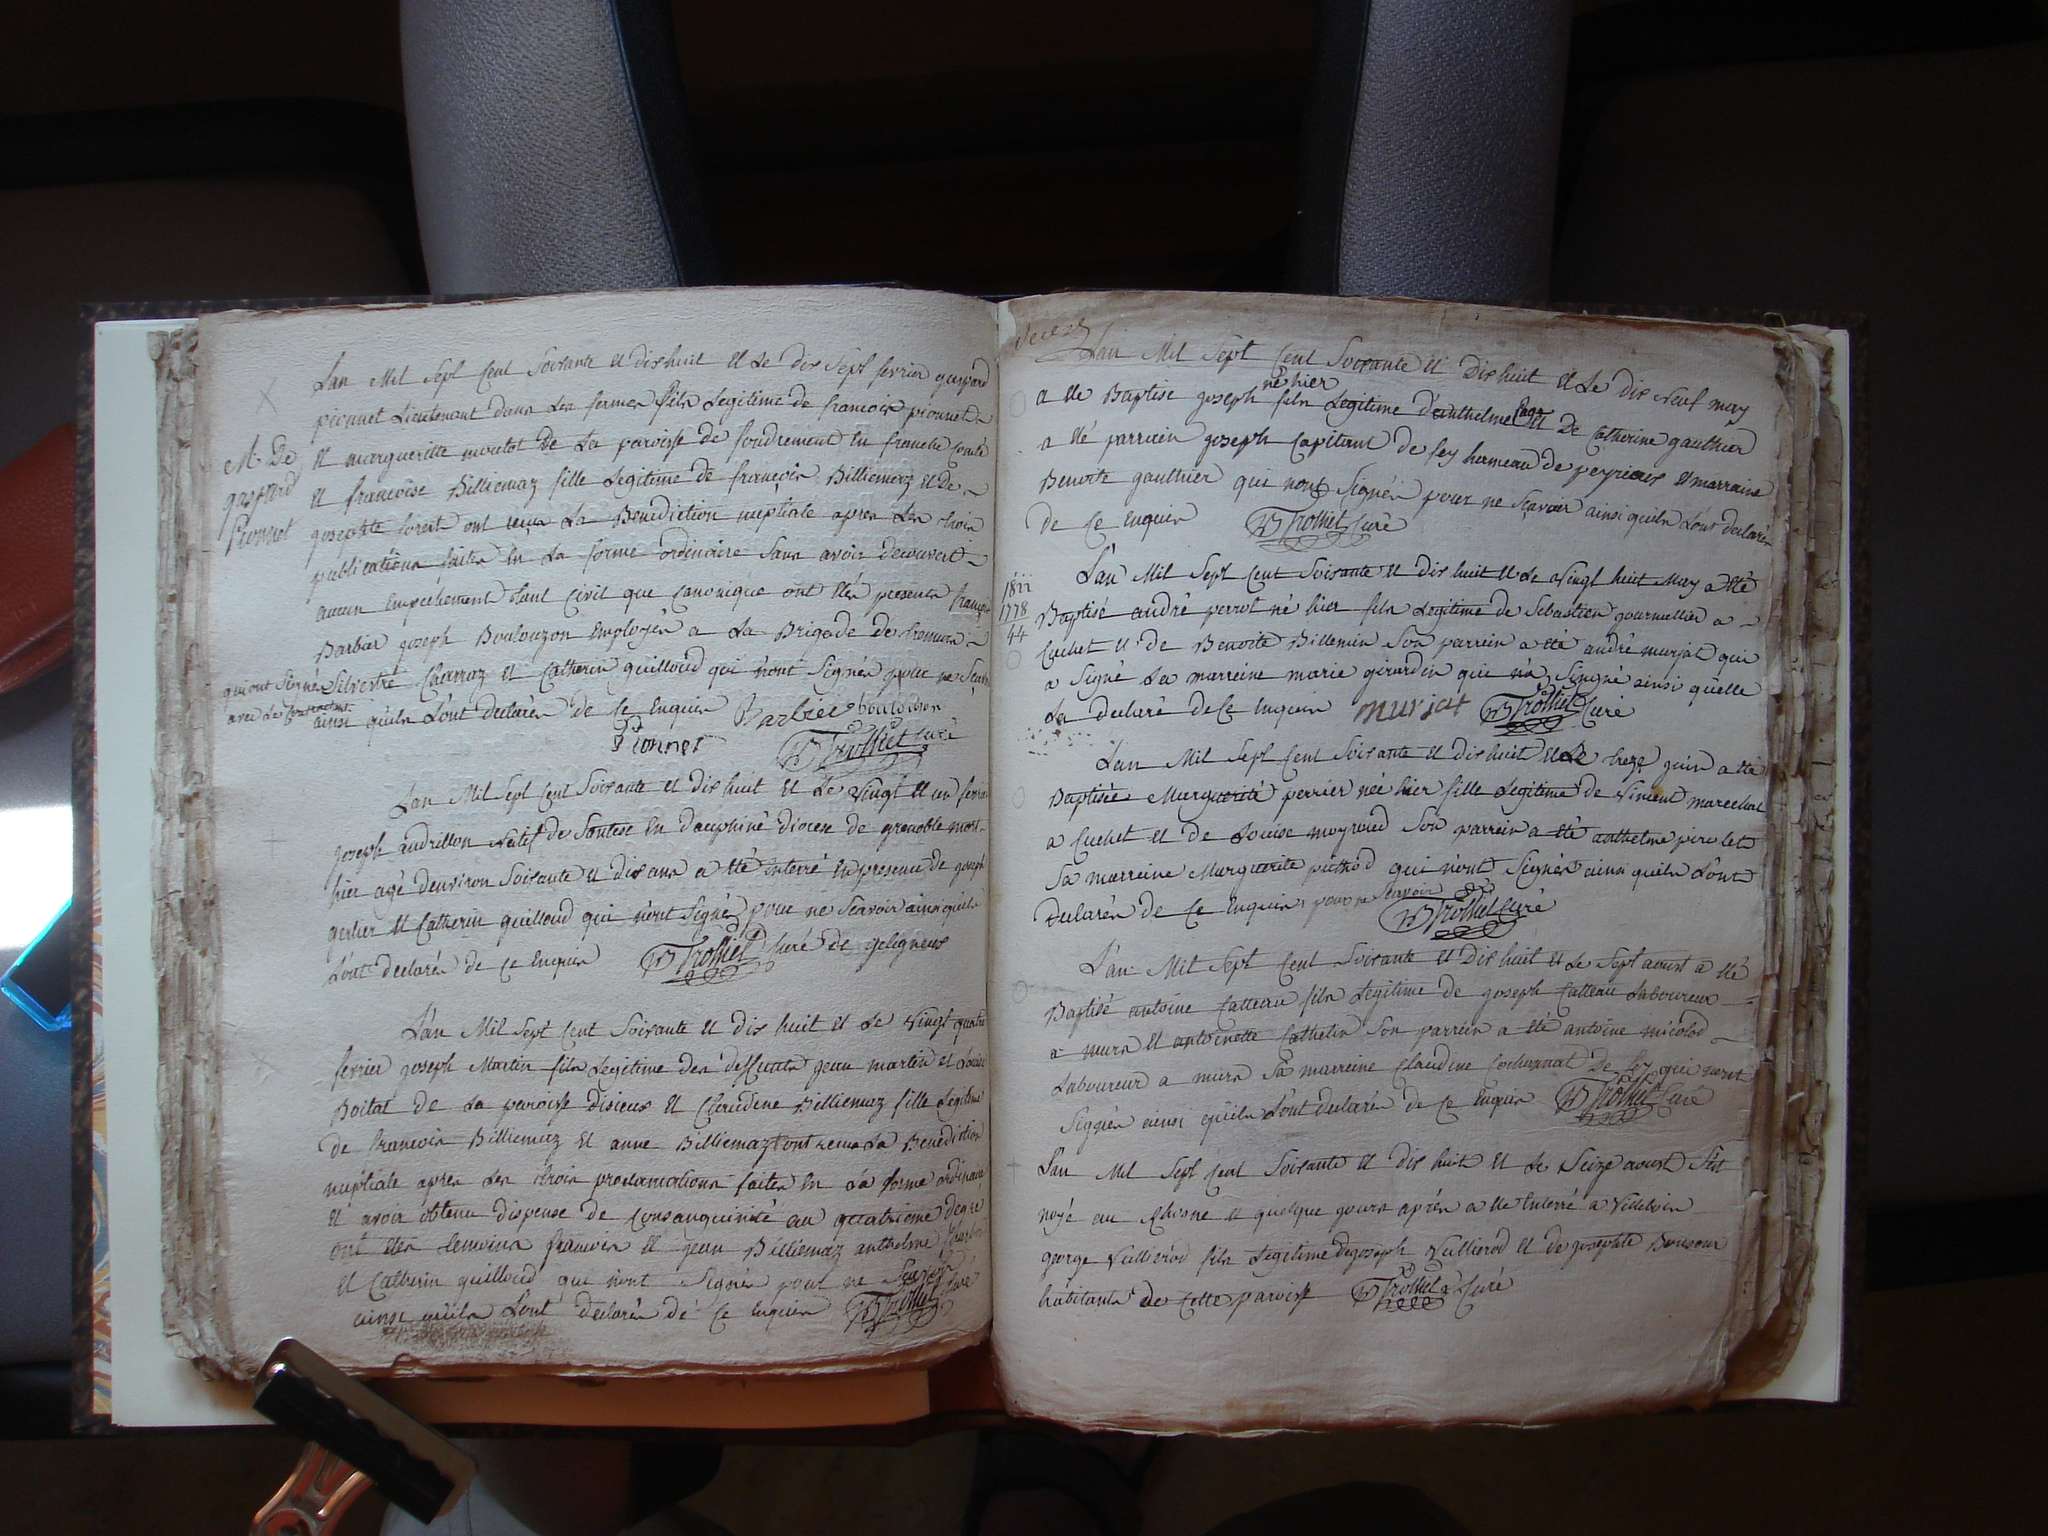 Lan Mil Sept Cent Soixante et dix huit et Le dix Sept fevrier gaspard
pionnet Lieutenant dans Les fermes fils Legitime de francois pionnet
Mr. De
gaspard
Pionnet
et margueritte moutot de La paroisse de fondrement En franche comté
et francoise Billiemaz fille Legitime de francois Billiemaz et de
josephte forest ont recus La Benediction nuptiale apres Les trois
publications faites En La forme ordinaire Sans avoir decouvert
aucun Empechement tant Civil que Canonique ont étés presents françois
Barbier joseph Boulouzon Employés a La Brigade de
qui ont Signés
avec Le Contractant
Silvestre Charraz et Catherin guilloud qui n'ont Signés pour ne Scavoir
ainsi quils Lont declarés de Ce Enquis Barbier boulouson
Pionnet Trolliet Curé
Lan Mil Sept Cent Soixante et dix huit et Le vingt et un fevrier
joseph audrillon Natif de Sontese En dauphiné diocese de grenoble mort
hier agé denviron Soixante et dix ans a été Enterré En presence de joseph
gerlier et Catherin guilloud qui n'ont Signés pour ne Scavoir ainsi quils
Lont declarés de Ce Enquis Trolliet Curé de gelignieux
Lan Mil Sept Cent Soixante et dix huit et Le vingt quatre
fevrier joseph Martin fils Legitime des deffunts jean martin et Louise
Boitat de La paroisse disieux et Claudine Billiemaz fille Legitime
de francois Billiemaz et anne Billiemaz ont recus La Benediction
nuptiale apres Les trois proclamations faites En La forme ordinaire
et avoir obtenu dispense de Consanguinité au quatrieme degré
ont étés temoins francois et jean Billiemaz anthelme
et Catherin guilloud qui n'ont Signés pour ne Scavoir
ainsi quils Lont declarés de Ce Enquis Trolliet Curé
Lan Mil Sept Cent Soixante et Dix huit et Le dix Neuf may
né hier
a été Baptisé joseph fils Legitime d'anthelme page et De Catherine gauthier
a été parrein joseph Capitant de fey hameau de peyrieux et marraine
Benoite gauthier qui nont Signés pour ne Scavoir ainsi quils Lont declarés
de Ce Enquis Trolliet Curé
Lan Mil Sept Cent Soixante et dix huit et Le vingt huit May a été
18
1778
44
Baptisé andré perrot né hier fils Legitime de Sebastien journallier a
Cuchet et de Benoite Billemin Son parrein a été andré murjat qui
a Signé La marreine marie girardin qui na Singné ainsi quelle
La declaré de Ce Enquis murjat Trolliet Curé
Lan Mil Sept Cent Soixante et dix huit et Le treze juin a été
Baptisée Marguerite perrier née hier fille Legitime de Vincent marechal
a Cuchet et de Louise moyroud Son parrein a été anthelme perolet
Sa marreine Marguerite pithiod qui n'ont Signés ainsi quils Lont
Declarés de Ce Enquis pour ne Scavoir Trolliet Curé
Lan Mil Sept Cent Soixante et Dix huit et Le Sept aoust a été
Baptisé antoine Catteau fils Legitime de joseph Catteau Laboureur
a murs et antoinette Cathelin Son parrein a été antoine micolod
Laboureur a murs Sa marreine Claudine de fey qui nont
Signés ainsi quils Lont declarés de Ce Enquis Trolliet Curé
Lan Mil Sept Cent Soixante et dix huit et Le Seize aoust S'est
noyé au Rhosne et quelque jours aprés a été Enterré a Villebois
george Vullierod fils Legitime de joseph Vullierod et de josephte Bonsour
habitants de Cette paroisse Trolliet Curé